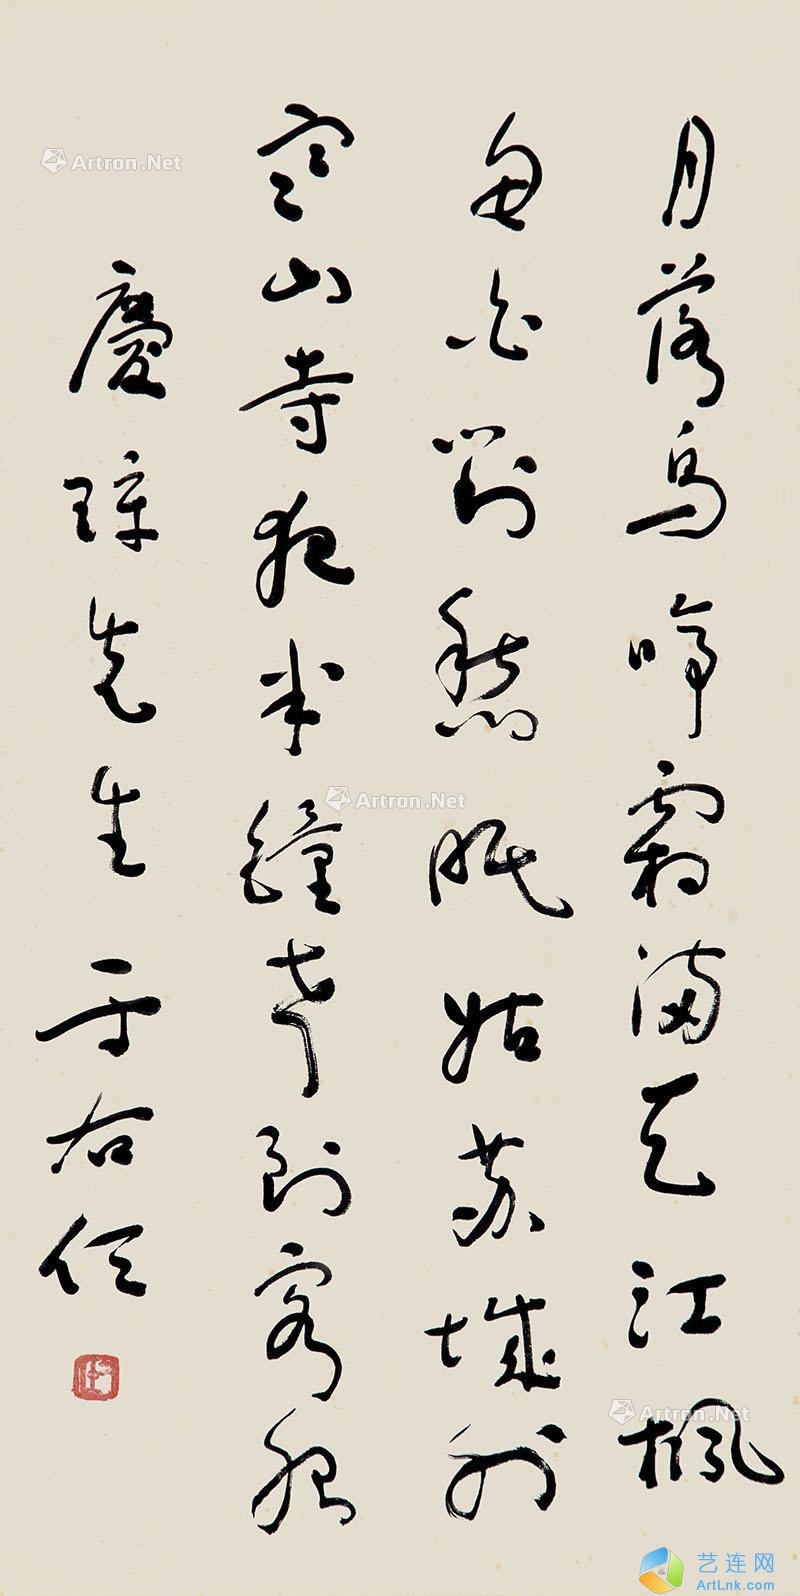 月落烏啼霜滿天江楓
魚火對愁眠姑蘇城外
寒山寺夜半鐘聲到客船
慶璋先生 于右任
Artron.Net
Artron.Net
Artron.Net
艺连网
ArtLnk.com